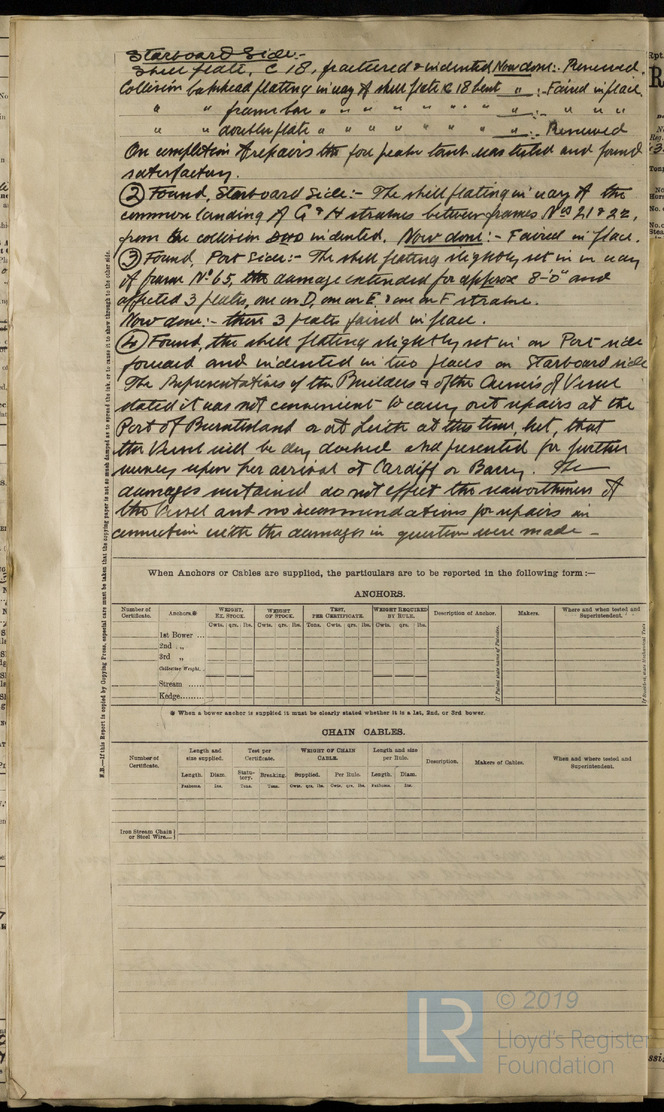 Starboard Side:-
Shell plate, C 18, fractured & indented Now done:- Renewed.
Collision bulkhead plating in way of shell plate C 18 bent " :- Faired in place.
" " frame bar " " " " " " " " :- " " "
" " doubler plate " " " " " " " :- Renewed
On completion of repairs the fore peak tank was tested and found
satisfactory.
② Found, Starboard Side:- The shell plating in way of the
common landing of G & H strakes between frames Nos 21 & 22,
from the collision indented. Now done:- Faired in place.
③ Found, Port Side:- The shell plating slightly set in in way
of frame No 65, the damage extended for approx 8'-0" and
affected 3 plates, one on D, one on E, & one on F strake.
Now done:- these 3 plates faired in place.
④ Found, the shell plating slightly set in on Port side
forward and indented in two places on Starboard side
The Representatives of the Builders & of the Owners of Vessel
stated it was not convenient to carry out repairs at the
Port of Burntisland or at Leith at this time, but, that
the Vessel will be dry docked and presented for further
survey upon her arrival at Cardiff or Barry. The
damages sustained do not effect the seaworthiness of
the Vessel and no recommendations for repairs in
connection with the damages in question were made -
N.B.—If this Report is copied by Copying Press, especial care must be taken that the copying paper is not so much damped as to spread the ink, or to cause it to show through to the other side.
When Anchors or Cables are supplied, the particulars are to be reported in the following form:—
ANCHORS.
Number of Certificate. Anchors.* WEIGHT, EX. STOCK. WEIGHT OF STOCK. TEST, PER CERTIFICATE. WEIGHT REQUIRED BY RULE. Description of Anchor. Makers. Where and when tested and Superintendent.
Cwts. qrs. lbs. Cwts. qrs. lbs. Tons. Cwts. qrs. lbs. Cwts. qrs. lbs.
1st Bower ...
2nd "
3rd "
Collective Weight.
Stream
Kedge
* When a bower anchor is supplied it must be clearly stated whether it is a 1st, 2nd, or 3rd bower.
CHAIN CABLES.
Number of Certificate. Length and size supplied. Test per Certificate. WEIGHT OF CHAIN CABLE. Length and size per Rule. Description. Makers of Cables. When and where tested and Superintendent.
Length. Diam. Statutory. Breaking. Supplied. Per Rule. Length. Diam.
Fathoms. Ins. Tons. Tons. Cwts. qrs. lbs. Cwts. qrs. lbs. Fathoms. Ins.
Iron Stream Chain or Steel Wire...
LR
© 2019
Lloyd's Register
Foundation